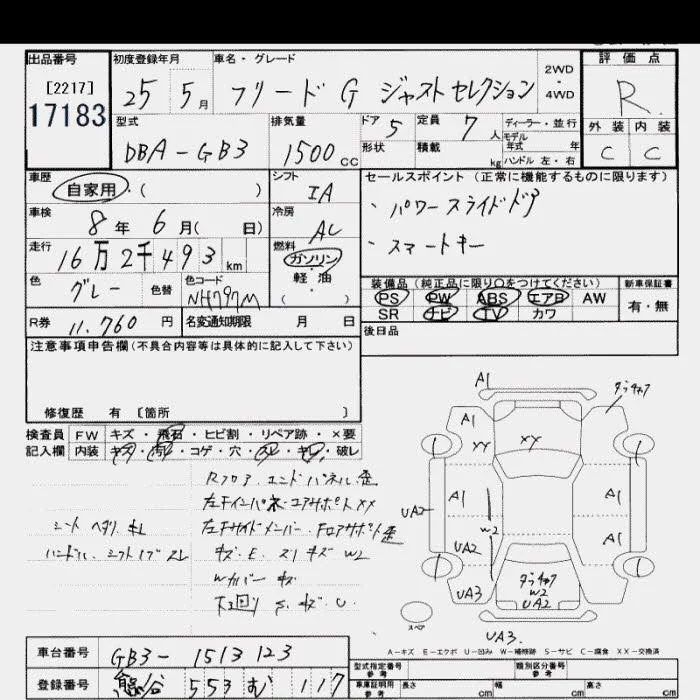 出品番号
[2217]
17183
初度登録年月
25 5月
車名・グレード
フリード G ジャストセレクション
2WD
・
4WD
評価点
R
外装 内装
C C
型式
DBA-GB3
排気量
1500 cc
ドア
5
形状
定員
7人
積載
kg
ディーラー・並行
モデル
年式 年
ハンドル 左・右
車歴
自家用・( )
シフト
IA
車検
8年 6月( 日)
冷房
AC
走行
16万2千493km
燃料
ガソリン
軽油
・
( )
色
グレー
色替
色コード
NH797M
R券
11.760 円
名変通知期限 月 日
セールスポイント (正常に機能するものに限ります)
・パワースライドドア
・スマートキー
装備品 (純正品に限り○をつけてください)
PS PW ABS エアB AW
SR ナビ TV カワ
新車保証書
有・無
後日品
注意事項申告欄(不具合内容等は具体的に記入して下さい)
修復歴 有 [箇所 ]
検査員
記入欄
FW キズ・飛石・ヒビ割・リペア跡・×要
内装 キズ・汚れ・コゲ・穴・スレ・キレ・破レ
Rフロア.エンドパネル.歪
左Fインパネ・コアサポートXX
左Fサイドメンバー.Fロアサポート歪
キズ.E. スリキズ W2
Wカバー キズ
下回り S.キズ.U
シート ヘタリ.キレ
ハンドル.シフトノブスレ
A1
ダッチャク
A1
YY
XY
A1
A1
UA2
W2
UA2
A1
UA3
ダッチャク
W2
UA2
UA3.
スペア
A-キズ E-エクボ U-凹み W-補修跡 S-サビ C-腐食 XX-交換済
車台番号
GB3-1513123
登録番号
熊谷 553 む 117
型式指定番号
参考
類別区分番号
参考
車庫証明用
参考
長さ cm
幅 cm
高さ cm